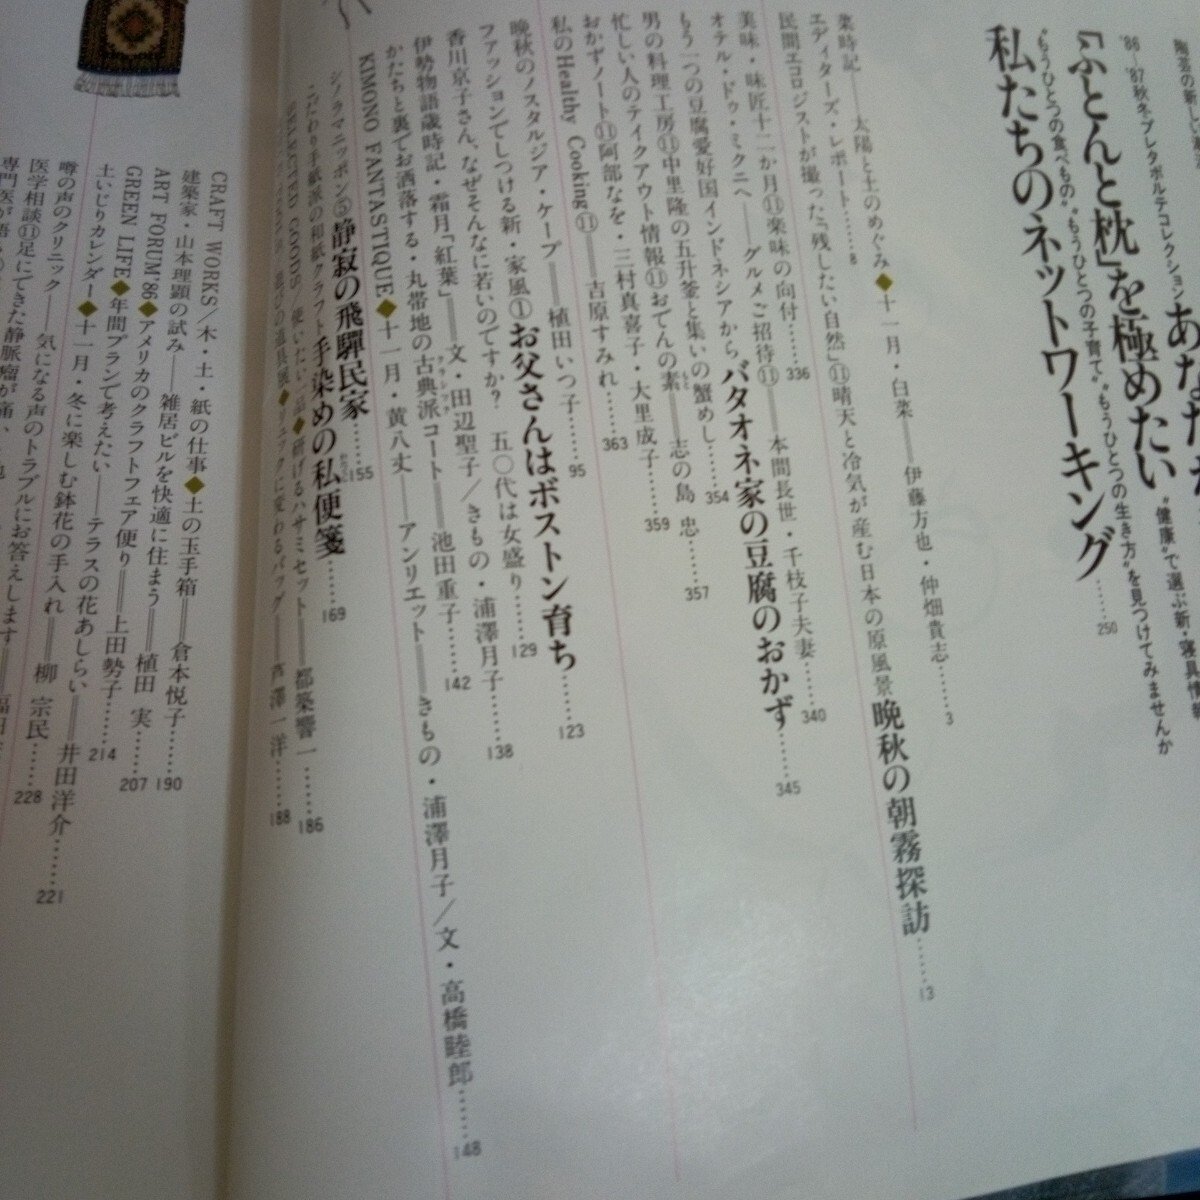 '86―'87秋冬プレタポルテコレクション
『ふとんと枕』を極めたい "健康"で選ぶ新・寝具情報
"もうひとつの食べもの" "もうひとつの子育て" "もうひとつの生き方"を見つけてみませんか
私たちのネットワーキング……250
菜時記――太陽と土のめぐみ◆十一月・白菜――伊藤方也・仲畑貴志……3
エディターズ・レポート……8
民間エコロジストが撮った「残したい自然」⑪晴天と冷気が産む日本の原風景 晩秋の朝霧探訪……13
美味・味匠十二か月⑪楽味の向付……336
オテル・ドゥ・ミクニへ――グルメご招待⑪――本間長世・千枝子夫妻……340
もう一つの豆腐愛好国インドネシアから バタオネ家の豆腐のおかず……345
男の料理工房⑪中里隆の五升釜と集いの蟹めし……354
忙しい人のテイクアウト情報⑪おでんの素――志の島 忠……357
おかずノート⑪阿部なを・三村真喜子・大里成子……359
私のHealthy Cooking⑪――吉原すみれ……363
晩秋のノスタルジア・ケープ――植田いつ子……95
ファッションでしつける新・家風①お父さんはボストン育ち……123
香川京子さん、なぜそんなに若いのですか? 五〇代は女盛り……129
伊勢物語歳時記・霜月「紅葉」――文・田辺聖子/きもの・浦澤月子……138
かたちと裏でお洒落する・丸帯地の古典派コート――池田重子……142
KIMONO FANTASTIQUE◆十一月・黄八丈――アンリエット――きもの・浦澤月子/文・高橋睦郎……148
シノラマニッポン⑤静寂の飛騨民家……155
こだわり手紙派の和紙クラフト手染めの私便箋……169
SELECTED GOODS/使いたい品◆研げるハサミセット――都築響一……186
遊びの道具展◆リュックに変わるバッグ――芦澤一洋……188
CRAFT WORKS/木・土・紙の仕事◆土の玉手箱――倉本悦子……190
建築家・山本理顕の試み――雑居ビルを快適に住まう――植田 実……207
ART FORUM'86◆アメリカのクラフトフェア便り――上田勢子……214
GREEN LIFE◆年間プランで考えたい――テラスの花あしらい――井田洋介……221
土いじりカレンダー◆十一月・冬に楽しむ鉢花の手入れ――柳 宗民……228
噂の声のクリニック――気になる声のトラブルにお答えします
医学相談⑪足にできた静脈瘤が痛い